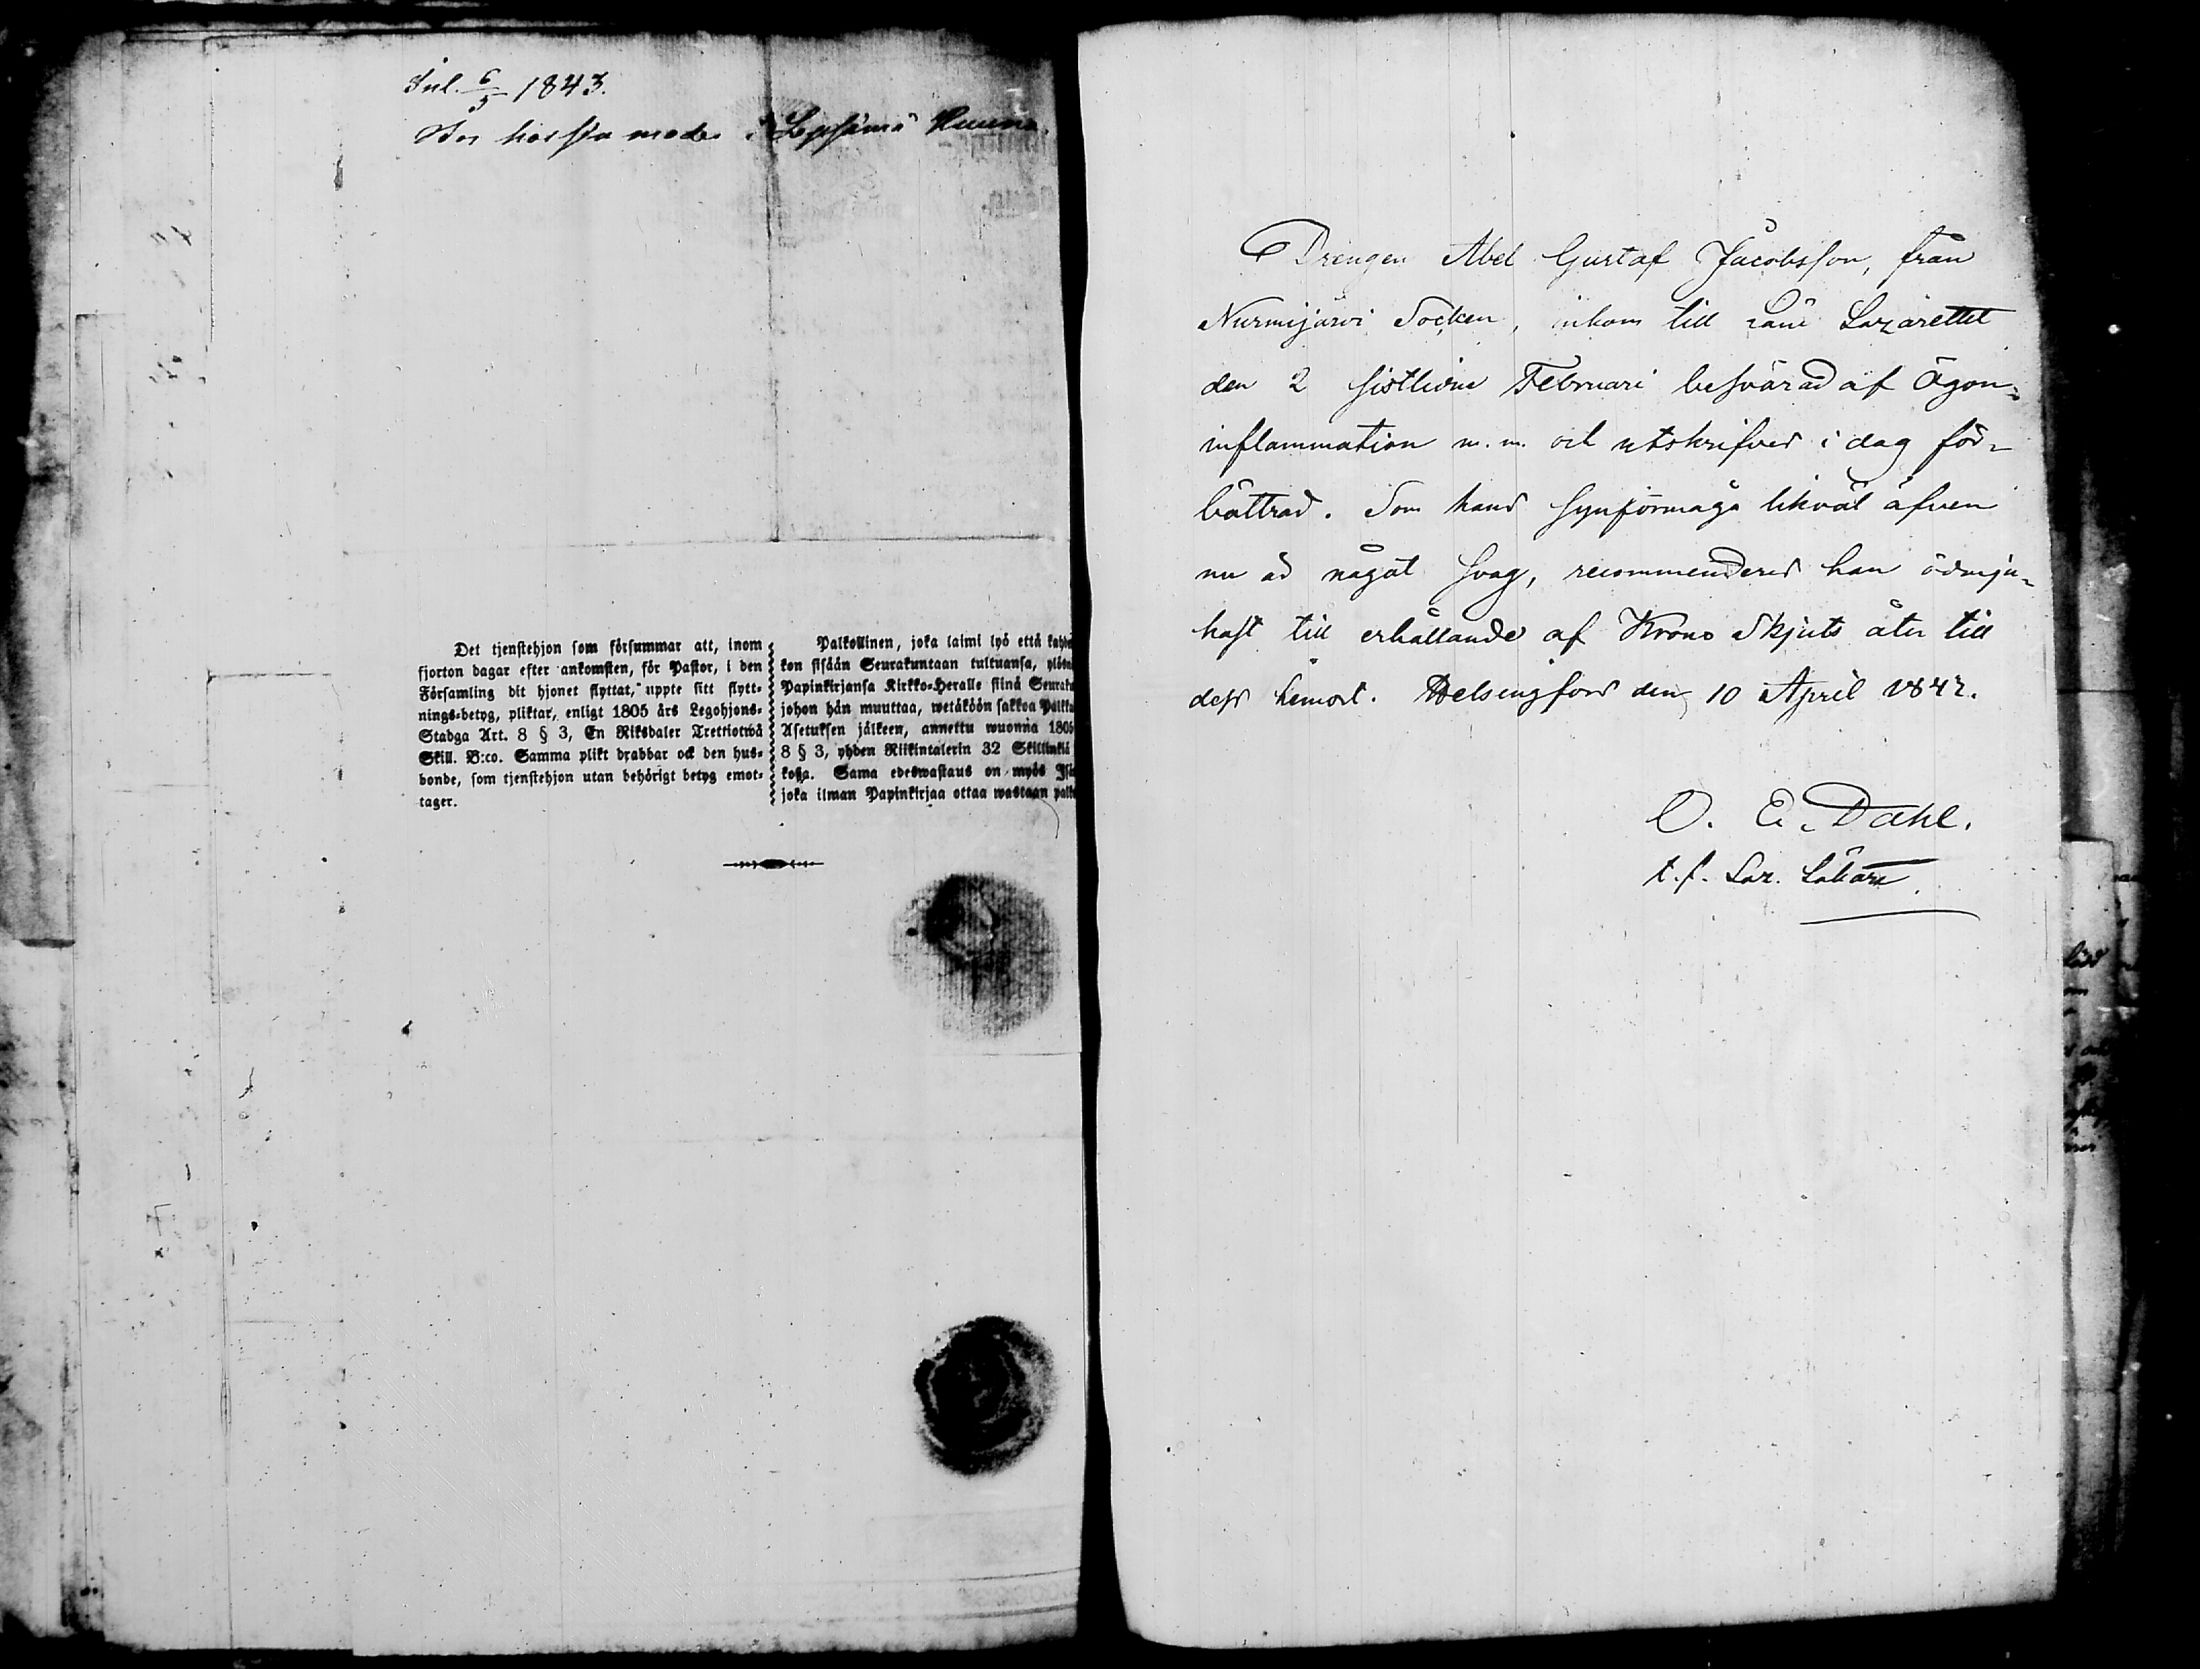 Inl. 6/5 1843.
Bor hos sin moder i Lepsämä Numa.
Det tjenstehjon som försummar att, inom
fjorton dagar efter ankomsten, för Pastor, i den
Församling dit hjonet flyttat, uppte sitt flytt-
nings-betyg, pliktar, enligt 1805 års Legohjons-
Stadga Art. 8 § 3, En Riksdaler Trettiotwå
Skill. B:co. Samma plikt drabbar ock den hus-
bonde, som tjenstehjon utan behörigt betyg emot-
tager.
Palkollinen, joka laimi lyö että kahde
kon sisään Seurakuntaan tultuansa, ylösn
Papinkirjansa Kirkko-Heralle siinä Seuraku
johon hän muuttaa, wetäköön sakkoa Palkka
Asetuksen jälkeen, annettu wuonna 1805
8 § 3, yhden Riikintalerin 32 Skillinkiä
kossa. Sama edeswastaus on myös Isä
joka ilman Papinkirjaa ottaa wastaan palk
Drengen Abel Gustaf Jacobsson, från
Nurmijärvi Socken, inkom till Läns Lazarettet
den 2 sistlidne Februari besvärad af Ögon-
inflammation m.m. och utskrifves i dag för-
bättrad. Som hans synförmåga likväl äfven
nu är något svag, recommenderas han ödmju-
kast till erhållande af Krono Skjuts åter till
dess hemort. Helsingfors den 10 April 1842.
O. E. Dahl.
t.f. Laz. Läkare.